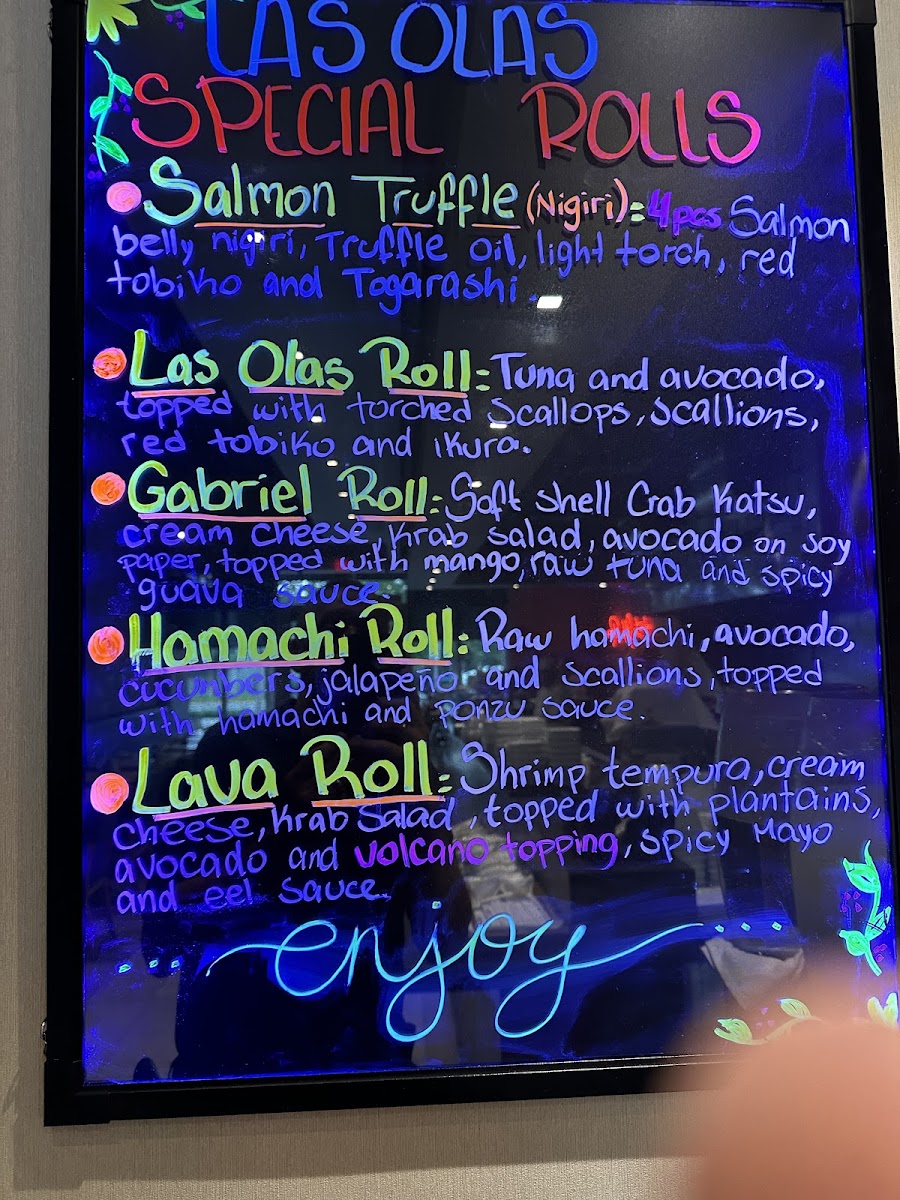 LAS OLAS
SPECIAL ROLLS
Salmon Truffle (Nigiri)= 4pcs Salmon
belly nigiri, Truffle oil, light torch, red
tobiko and Togarashi
Las Olas Roll: Tuna and avocado,
topped with torched Scallops, scallions,
red tobiko and ikura.
Gabriel Roll: Soft shell Crab Katsu,
cream cheese, krab salad, avocado on soy
paper, topped with mango, raw tuna and spicy
guava sauce.
Hamachi Roll: Raw hamachi, avocado,
cucumbers, jalapeño and scallions, topped
with hamachi and ponzu sauce.
Lava Roll: Shrimp tempura, cream
cheese, Krab Salad, topped with plantains,
avocado and volcano topping, spicy Mayo
and eel sauce.
enjoy